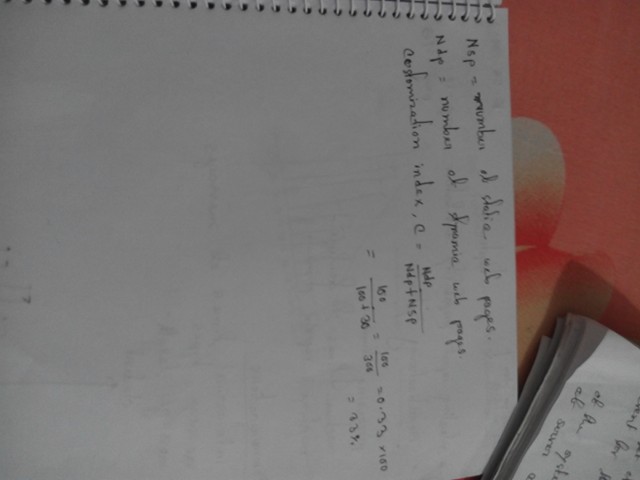 Nsp = number of static web pages.
Ndp = number of dynamic web pages.
Costomization index, C = Ndp / Ndp + Nsp
= 100 / 100 + 30 = 100 / 300 = 0.33 × 100
= 33%